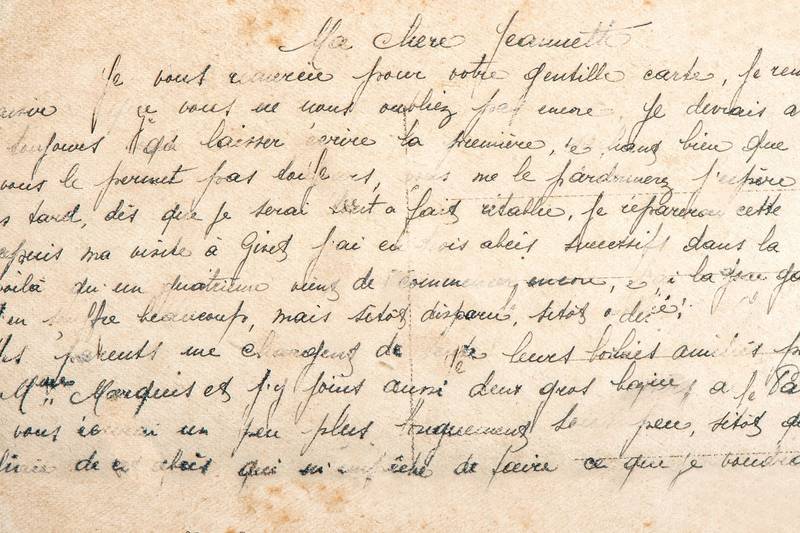 Ma chere Jeannette
Je vous remercie pour votre gentille carte, je
vous ne nous oubliez pas encore, je devrais a
toujours laisser écrire la première, sachant bien que
vous le permet pas toujours, vous me le pardonnerez j'espère
tard, dès que je serai tout à fait rétablie, je réparerai cette
ma visite à Givet j'ai eu trois abcis successifs dans la
voilà qu'un quatrième vient de commencer encore,
en souffre beaucoup, mais sitôt disparu, sitôt
parents me chargent de leurs bonnes amitiés
Marquis et j'y joins aussi deux gros
vous écrirai un peu plus longuement sous peu, sitôt
de ces abcis qui m'empêche de faire ce que je